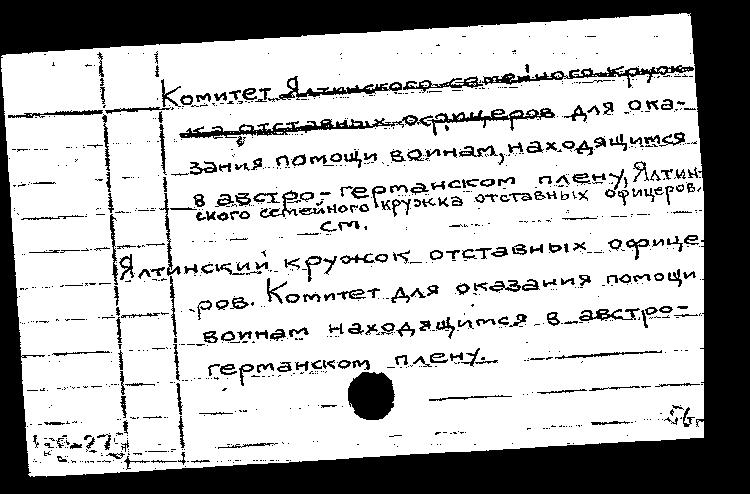 Комитет Ялтинского семейного круж-
ка отставных офицеров для ока-
зания помощи воинам, находящимся
в австро-германском плену, Ялтин-
ского семейного кружка отставных офицеров.
см.
Ялтинский кружок отставных офице-
ров. Комитет для оказания помощи
воинам находящимся в австро-
германском плену.